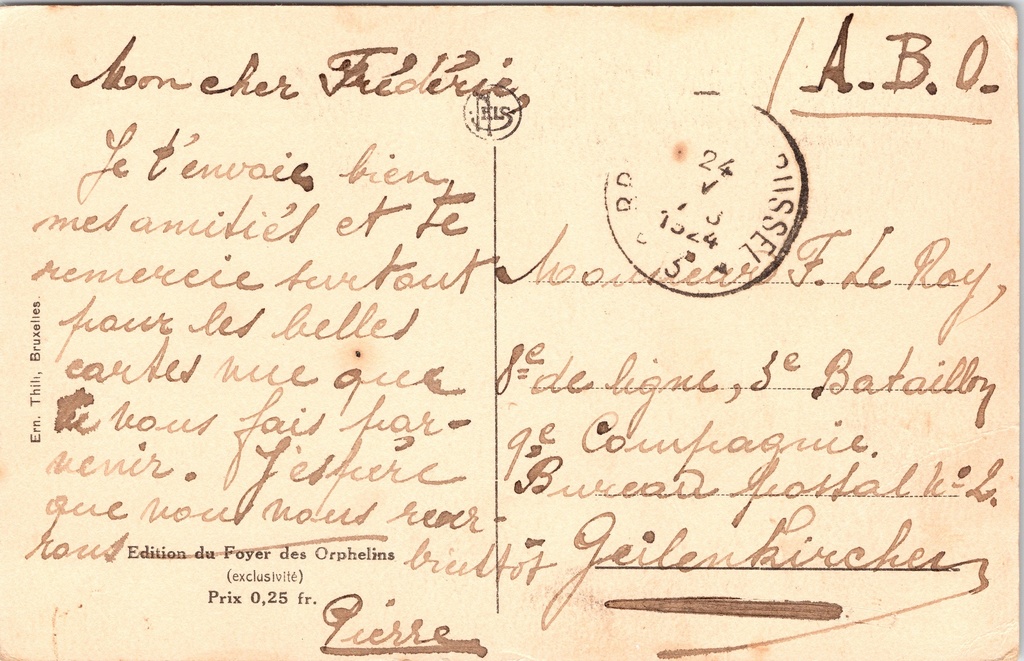 Mon cher Frédéric,
Je t'envoie bien
mes amitiés et te
remercie surtout
pour les belles
cartes vue que
tu nous fais par-
venir. J'espère
que nous nous rever-
rons bientôt
Pierre
Edition du Foyer des Orphelins
(exclusivité)
Prix 0,25 fr.
Ern. Thill, Bruxelles.
A. B. O.
24
V
1924
Monsieur F. Le Roy,
8e de ligne, 3e Bataillon
9e Compagnie.
Bureau postal No 2.
Geilenkirchen